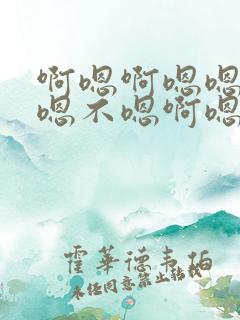 啊嗯啊嗯嗯
嗯不嗯啊嗯
霍华德韦伯
未经同意禁止转载